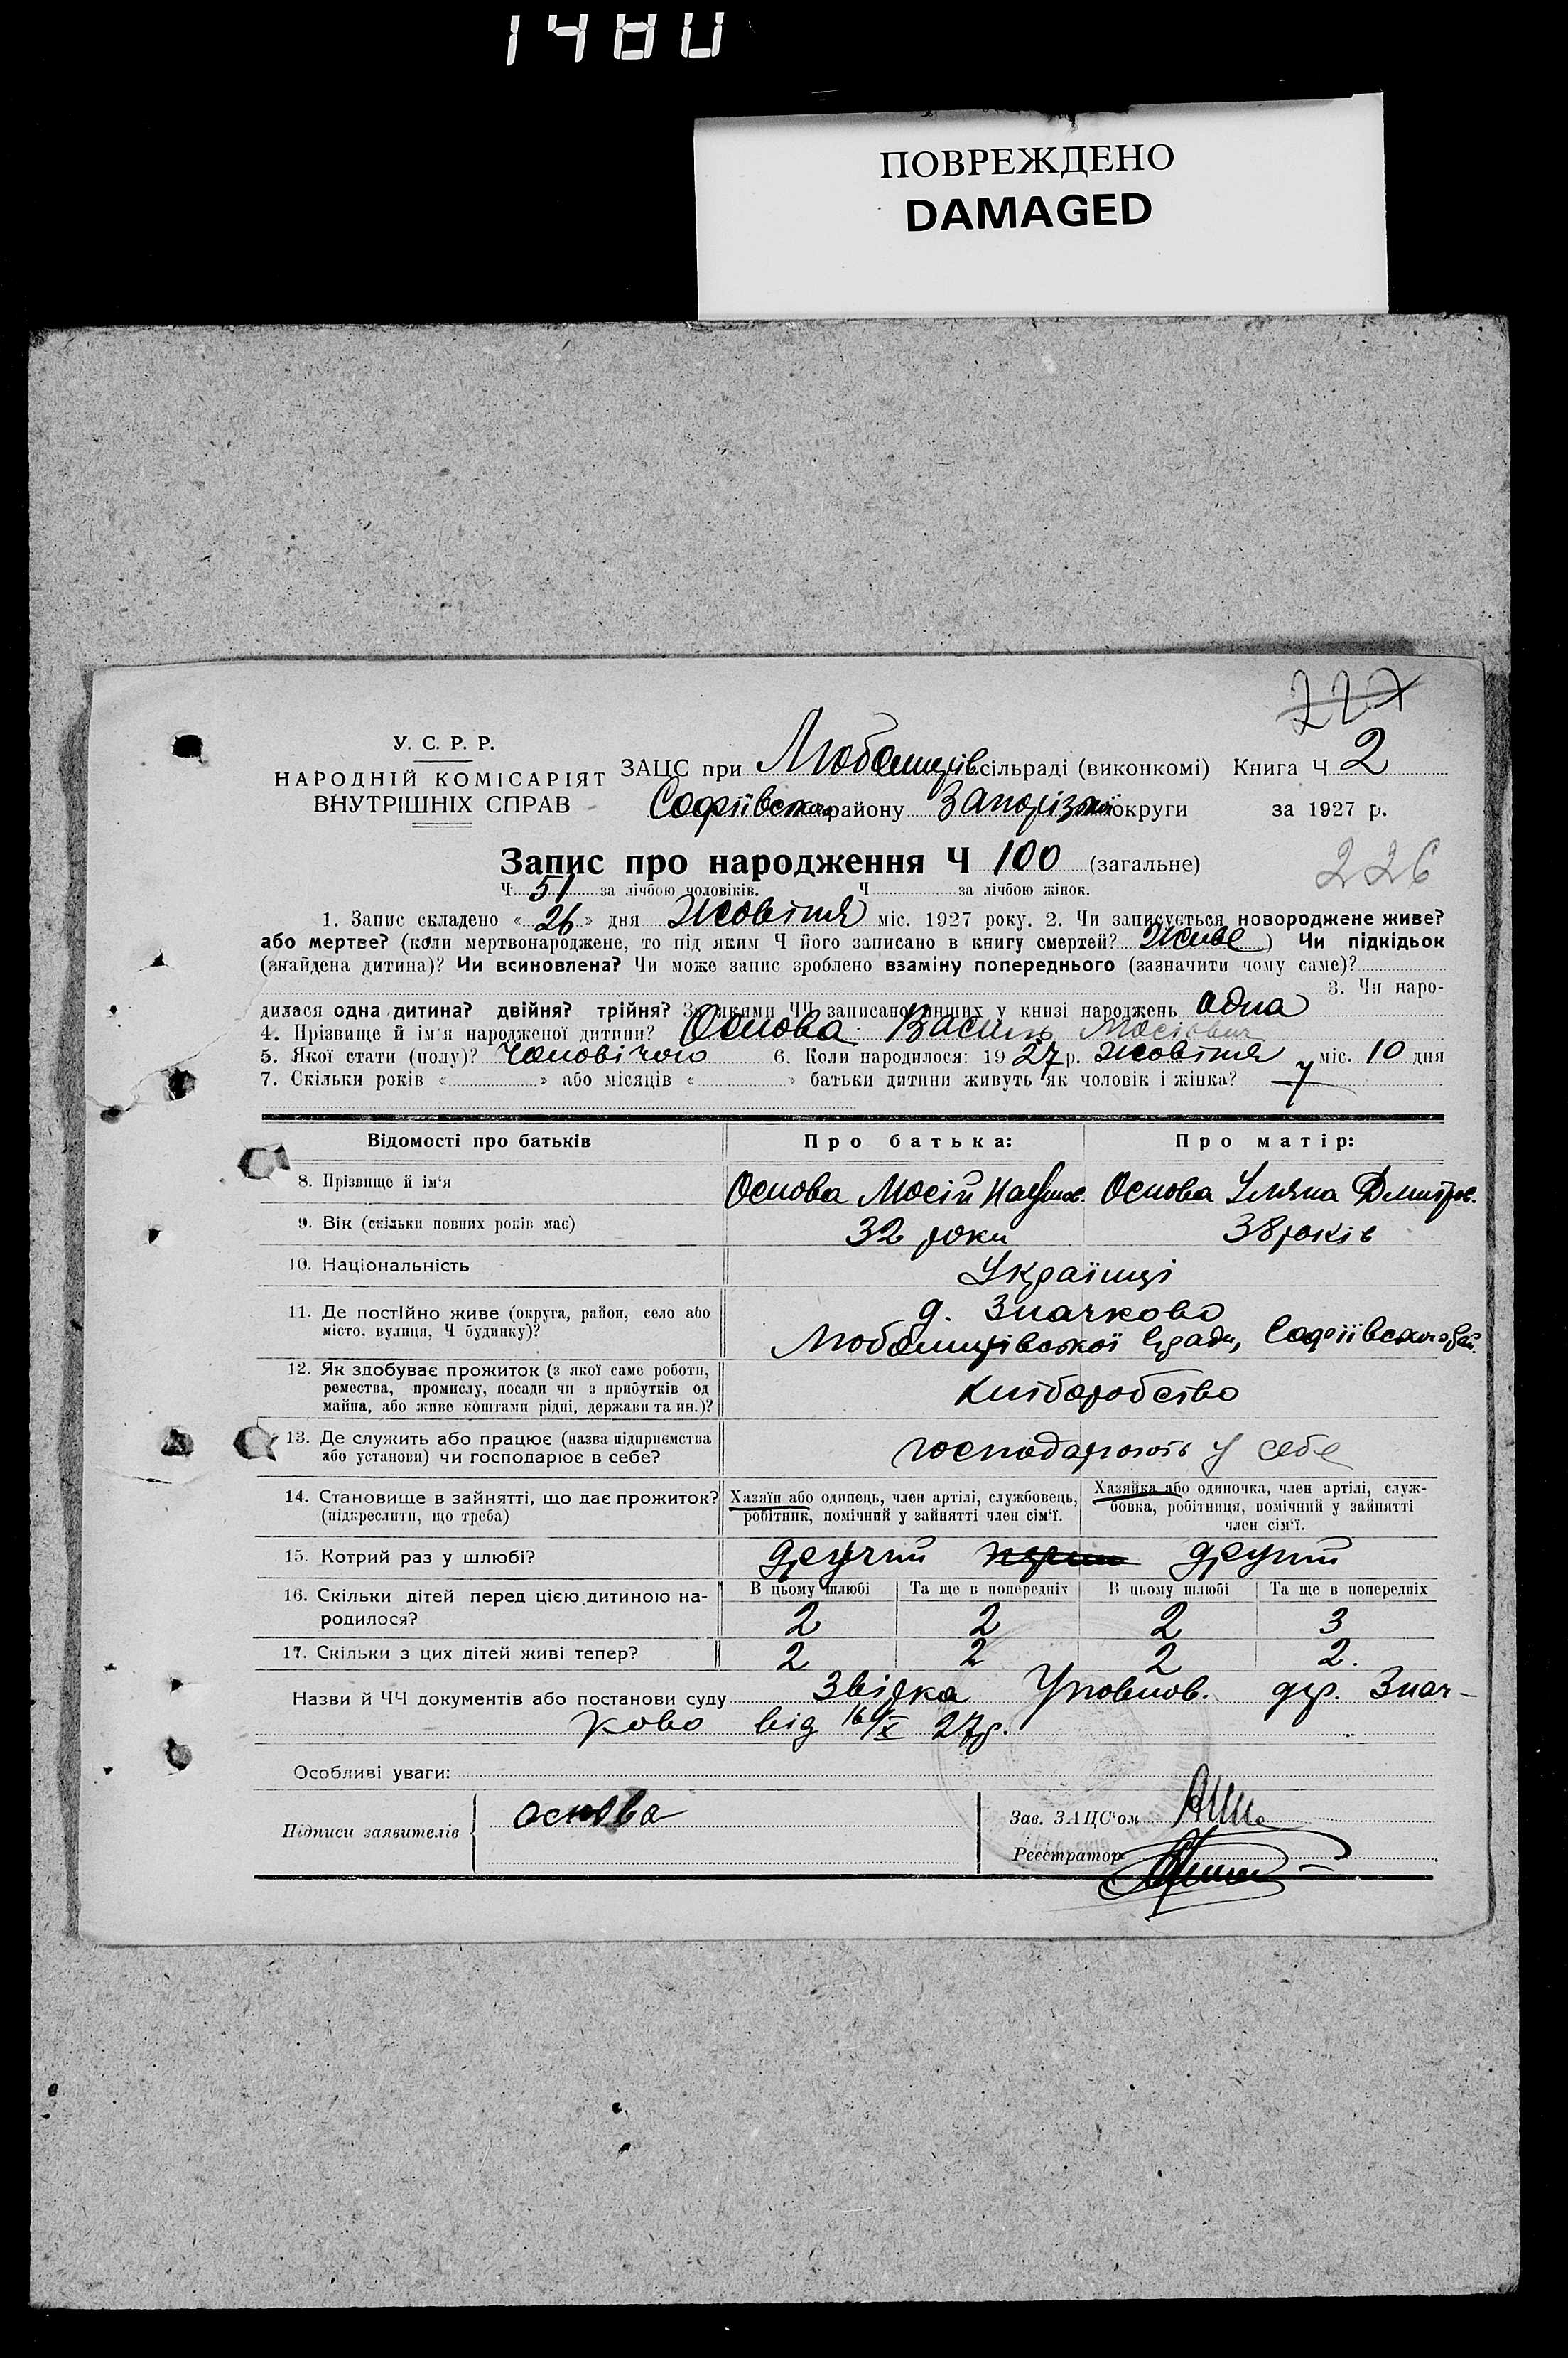 1480
ПОВРЕЖДЕНО
DAMAGED
227
У. С. Р. Р.
НАРОДНІЙ КОМІСАРІЯТ
ВНУТРІШНІХ СПРАВ
ЗАЦС при Любомирів сільраді (виконкомі) Книга Ч 2
Софіївськ району Запоріз округи за 1927 р.
Запис про народження Ч 100 (загальне)
226
Ч 51 за лічбою чоловіків. Ч за лічбою жінок.
1. Запис складено «26» дня Жовтня міс. 1927 року. 2. Чи записується новороджене живе?
або мертве? (коли мертвонароджене, то під яким Ч його записано в книгу смертей? Живе) Чи підкідьок
(знайдена дитина)? Чи всиновлена? Чи може запис зроблено взаміну попереднього (зазначити чому саме)?
3. Чи наро-
дилася одна дитина? двійня? трійня? За якими ЧЧ записано инших у книзі народжень одна
4. Прізвище й ім'я народженої дитини? Основа Василь Мосійович
5. Якої стати (полу)? Чоловічого 6. Коли народилося: 1927 р. жовтня міс. 10 дня
7. Скільки років « » або місяців « » батьки дитини живуть як чоловік і жінка? 7
Відомості про батьків Про батька: Про матір:
8. Прізвище й ім'я Основа Мосій Наумов. Основа Уляна Дмитров.
9. Вік (скільки повних років має) 32 роки 38 років
10. Національність Українці
11. Де постійно живе (округа, район, село або
місто, вулиця, Ч будинку)?
д. Значково
Любомирівської с/ради, Софіївського рай.
12. Як здобуває прожиток (з якої саме роботи,
ремества, промислу, посади чи з прибутків од
майна, або живе коштами рідні, держави та ин.)?
хліборобство
13. Де служить або працює (назва підприємства
або установи) чи господарює в себе?
господарюють у себе
14. Становище в зайнятті, що дає прожиток?
(підкреслити, що треба)
Хазяїн або одинець, член артілі, службовець,
робітник, помічний у зайнятті член сім'ї.
Хазяйка або одиночка, член артілі, служ-
бовка, робітниця, помічний у зайнятті
член сім'ї.
15. Котрий раз у шлюбі? другий другий
16. Скільки дітей перед цією дитиною на-
родилося?
В цьому шлюбі Та ще в попередніх В цьому шлюбі Та ще в попередніх
2 2 2 3
17. Скільки з цих дітей живі тепер? 2 2 2 2.
Назви й ЧЧ документів або постанови суду Звідка Уповнов. дер. Знач-
ково від 16/X 27р.
Особливі уваги:
Підписи заявителів основа
Зав. ЗАЦС'ом
Реєстратор